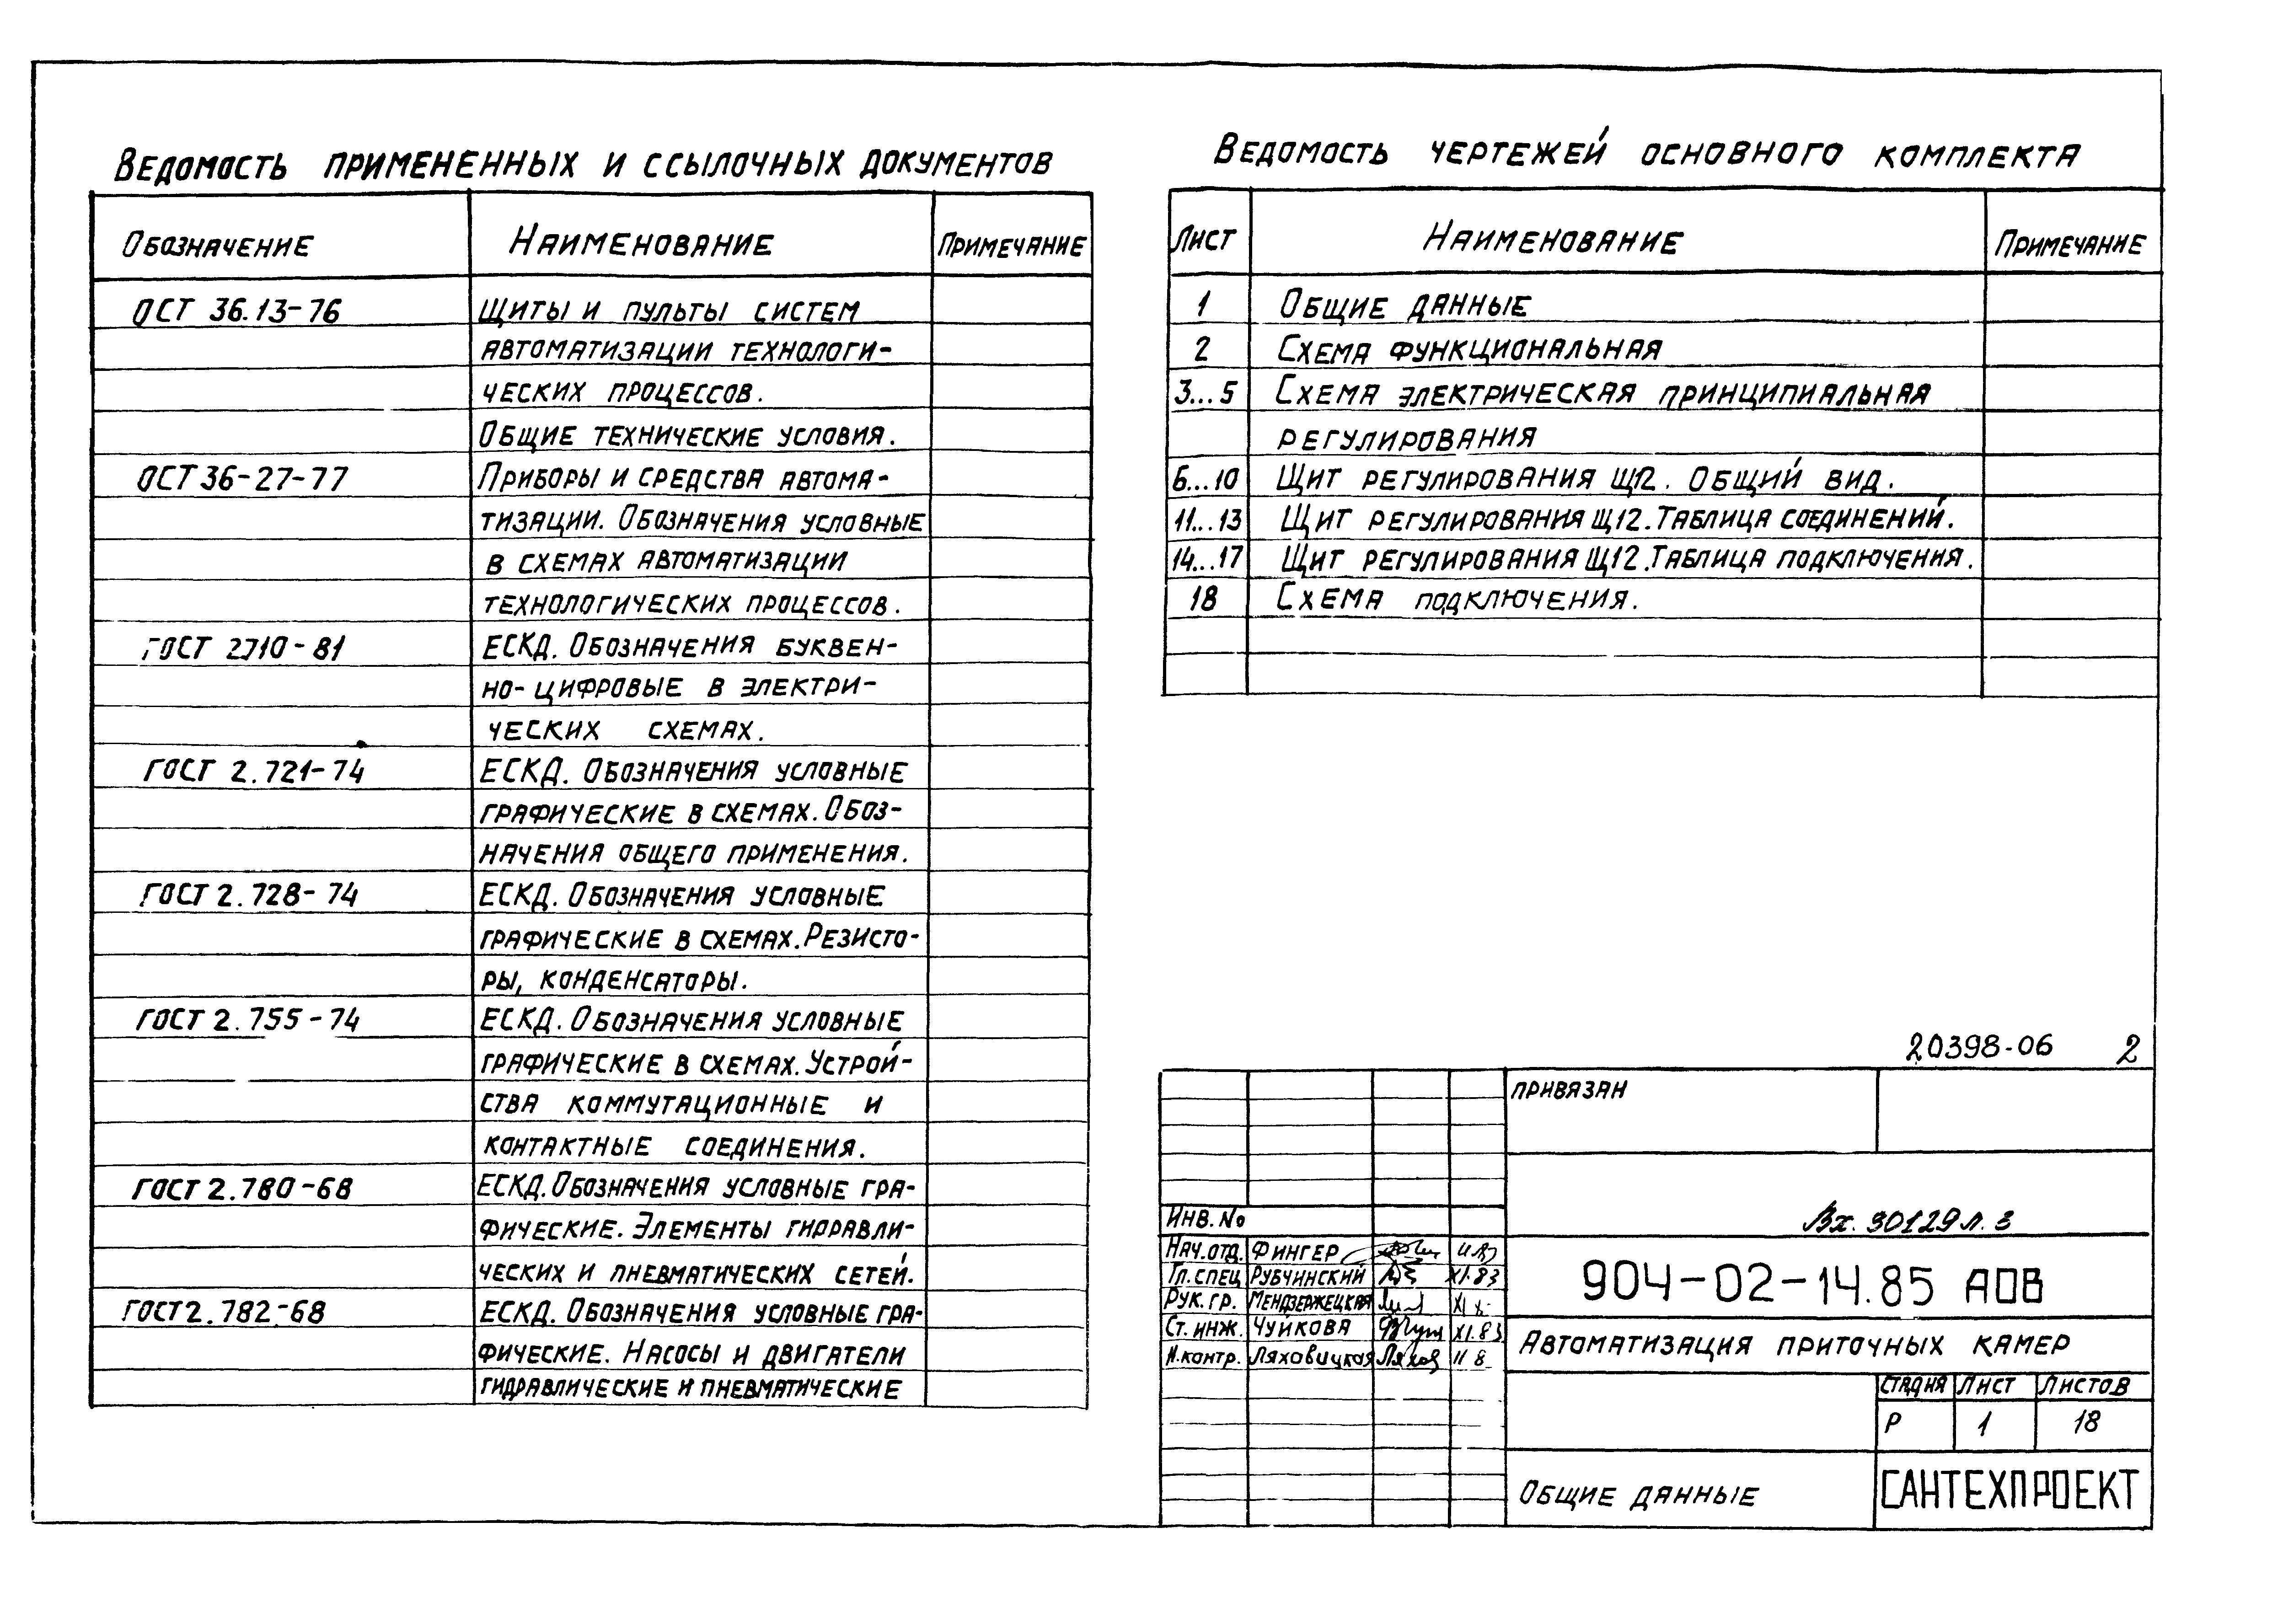 Ведомость примененных и ссылочных документов
Обозначение Наименование Примечание
ОСТ 36.13-76 Щиты и пульты систем
автоматизации технологи-
ческих процессов.
Общие технические условия.
ОСТ 36-27-77 Приборы и средства автома-
тизации. Обозначения условные
в схемах автоматизации
технологических процессов.
ГОСТ 2.710-81 ЕСКД. Обозначения буквен-
но-цифровые в электри-
ческих схемах.
ГОСТ 2.721-74 ЕСКД. Обозначения условные
графические в схемах. Обоз-
начения общего применения.
ГОСТ 2.728-74 ЕСКД. Обозначения условные
графические в схемах. Резисто-
ры, конденсаторы.
ГОСТ 2.755-74 ЕСКД. Обозначения условные
графические в схемах. Устрой-
ства коммутационные и
контактные соединения.
ГОСТ 2.780-68 ЕСКД. Обозначения условные гра-
фические. Элементы гидравли-
ческих и пневматических сетей.
ГОСТ 2.782-68 ЕСКД. Обозначения условные гра-
фические. Насосы и двигатели
гидравлические и пневматические
Ведомость чертежей основного комплекта
Лист Наименование Примечание
1 Общие данные
2 Схема функциональная
3...5 Схема электрическая принципиальная
регулирования
6...10 Щит регулирования Щ12. Общий вид.
11...13 Щит регулирования Щ12. Таблица соединений.
14...17 Щит регулирования Щ12. Таблица подключения.
18 Схема подключения.
20398-06 2
привязан
Инв. №
Вх. 30129 л. 3
Нач.отд. Фингер
Гл. спец Рубчинский XI.83
Рук. гр. Мендзержецкая
Ст. инж. Чуйкова XI.83
Н.контр. Ляховицкая
904-02-14.85 АОВ
Автоматизация приточных камер
Стадия Лист Листов
Р 1 18
Общие данные
САНТЕХПРОЕКТ